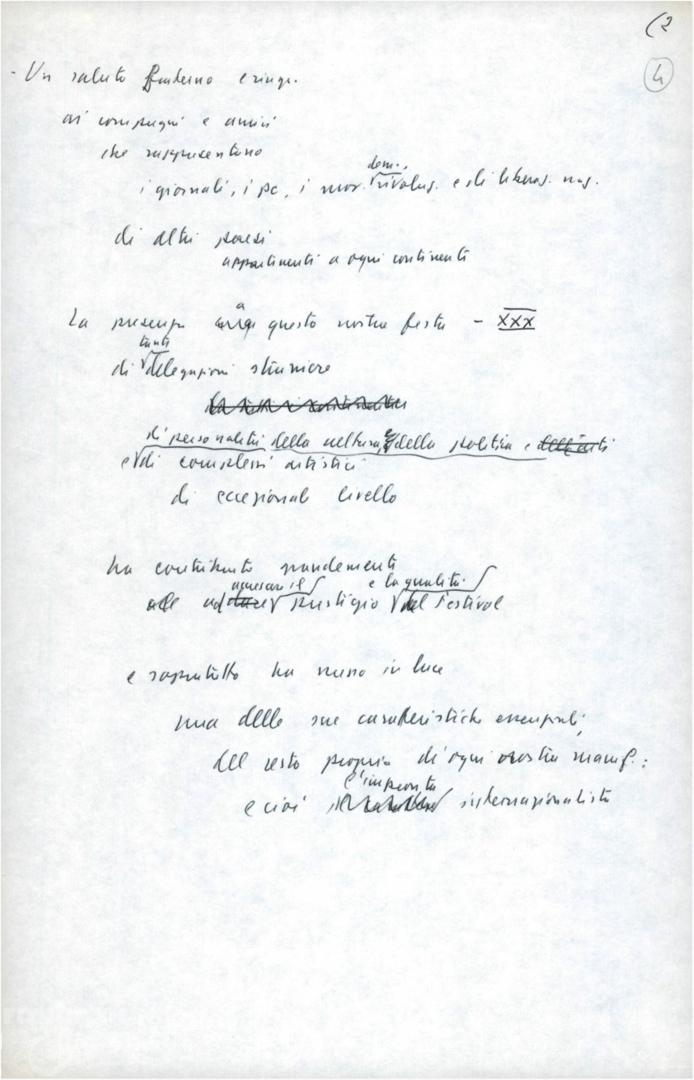 (2
4
- Un saluto fraterno e ringr.
ai compagni e amici
che rappresentano
dem.,
i giornali, i pc, i mov. rivolus. e di liberaz. naz.
di altri paesi
appartenenti a ogni continente
La presenza a questa nostra festa - XXX
tante
di delegazioni straniere
di personalità della cultura, e della politica e dell'arti
e di complessi artistici
di eccezionale livello
ha contribuito grandemente
accrescere il e la qualità
prestigio del Festival
e soprattutto ha messo in luce
una delle sue caratteristiche essenziali,
del resto propria di ogni nostra manif.:
l'impronta
e cioè internazionalista